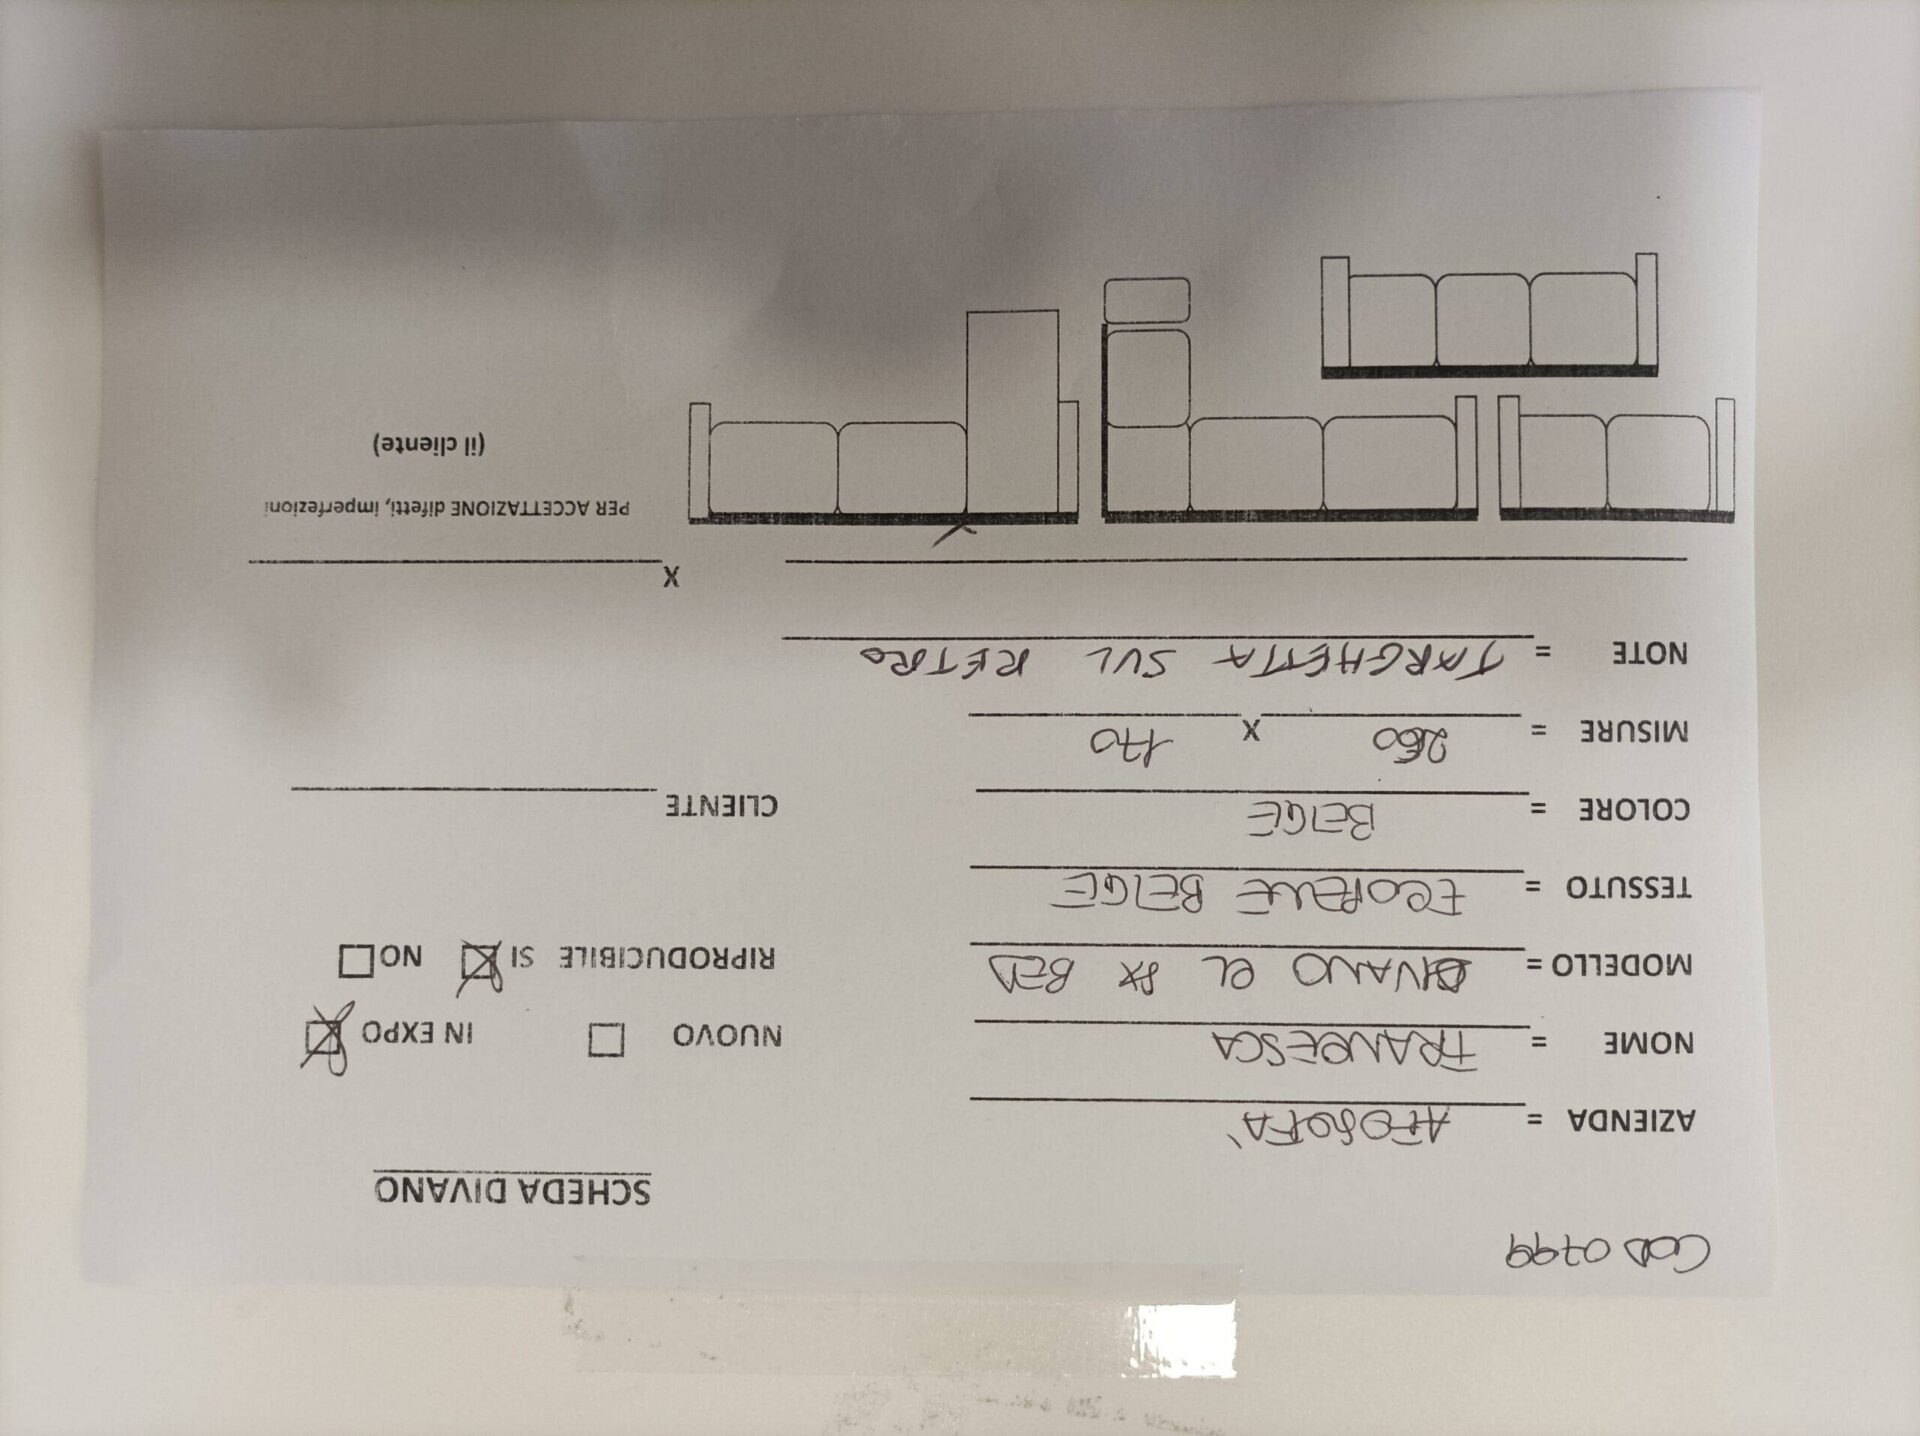 COD 0799
SCHEDA DIVANO
AZIENDA =
NOME = FRANCESCA
NUOVO IN EXPO
MODELLO = DIVANO CL DX BED
RIPRODUCIBILE SI NO
TESSUTO = ECOPELLE BEIGE
COLORE = BEIGE
CLIENTE
MISURE = 260 X 170
NOTE = TARGHETTA SUL RETRO
X
PER ACCETTAZIONE difetti, imperfezioni
(il cliente)